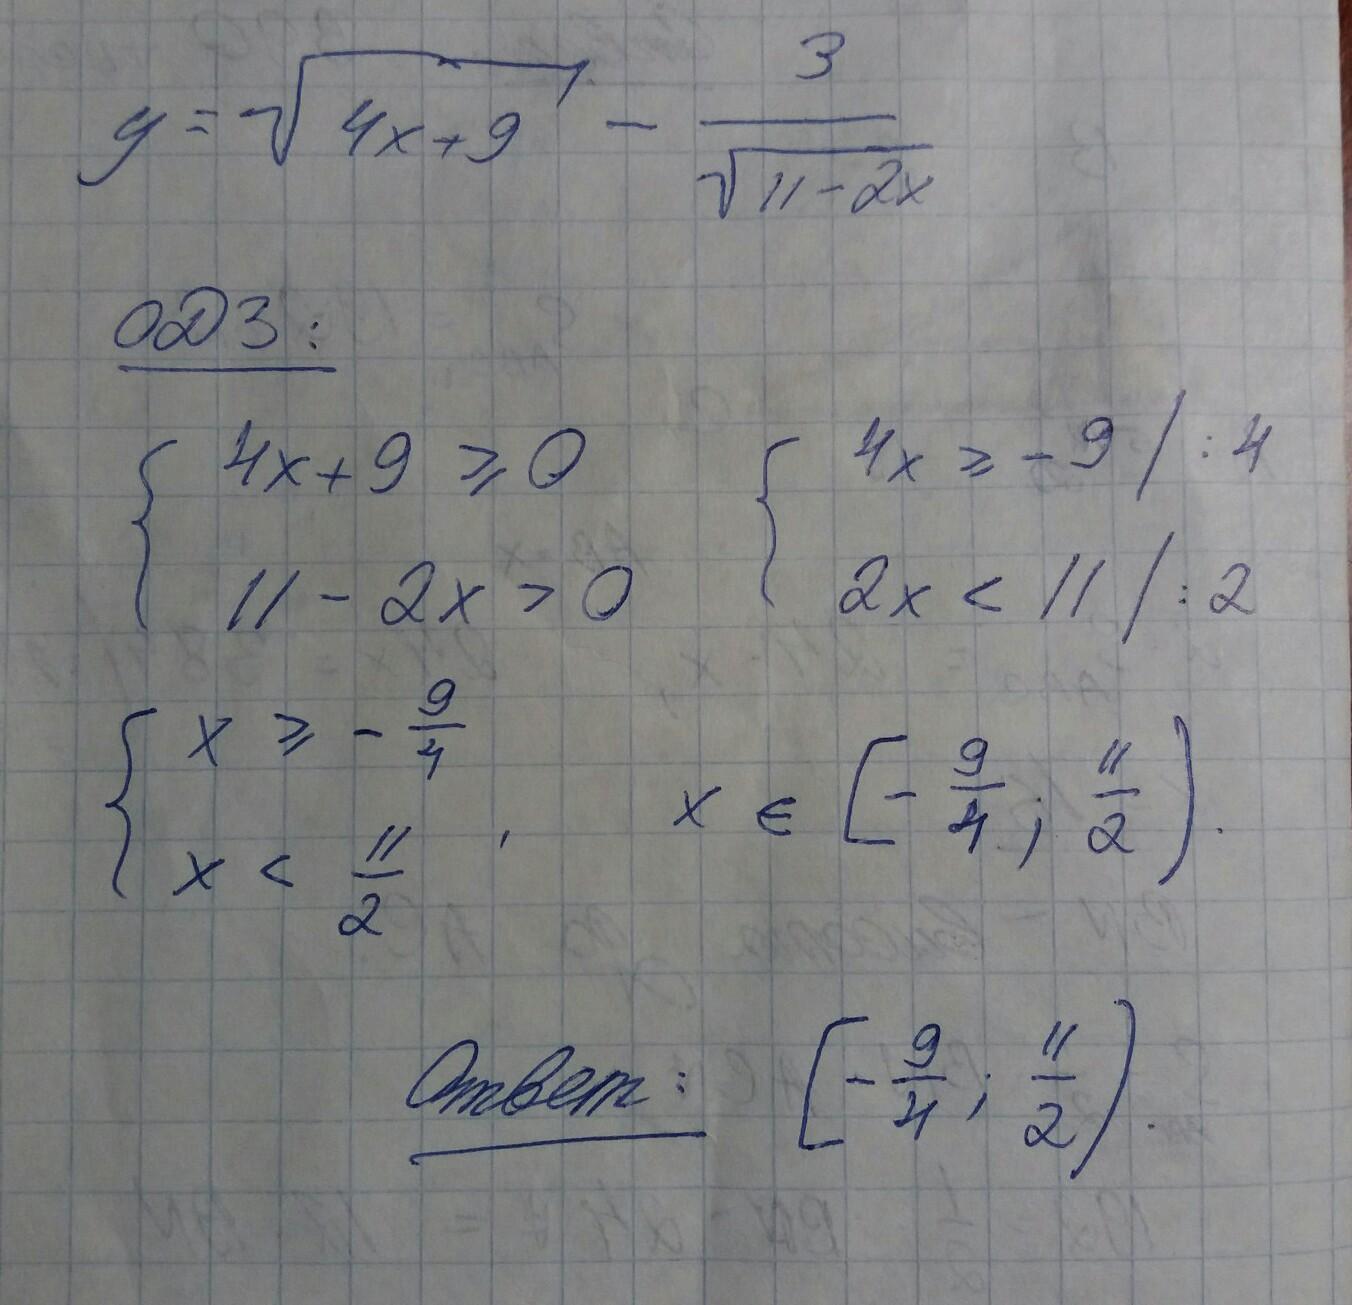 y = √(4x+9) - 3/√(11-2x)
ОДЗ:
{ 4x+9 ⩾ 0 { 4x ⩾ -9 / : 4
11 - 2x > 0 2x < 11 / : 2
{ x ⩾ - 9/4
x < 11/2 , x ∈ [- 9/4 ; 11/2).
Ответ: [- 9/4 ; 11/2).